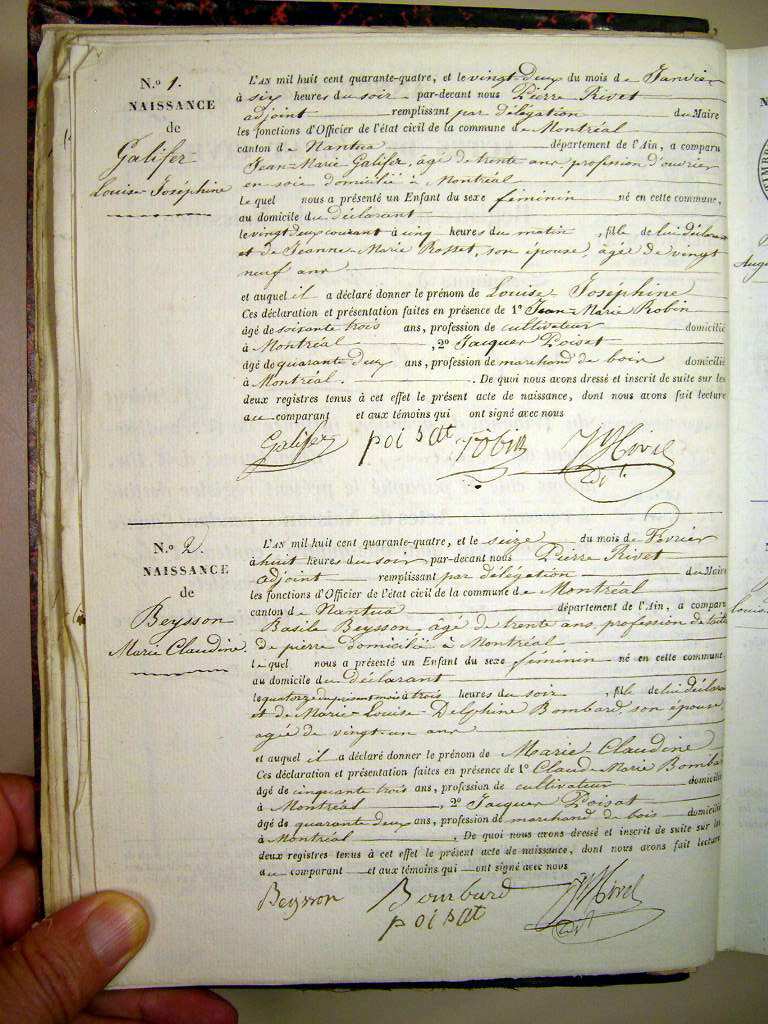 N.º 1.
NAISSANCE
de
Galifer
Louise Joséphine
L'AN mil huit cent quarante-quatre, et le vingt deux du mois de Janvier
à six heures du soir par-devant nous Pierre Rivet
adjoint remplissant par délégation du Maire
les fonctions d'Officier de l'état civil de la commune de Montréal
canton de Nantua département de l'Ain, a comparu
Jean-Marie Galifer, âgé de trente ans profession d'ouvrier
en soie domicilié à Montréal
Le quel nous a présenté un Enfant du sexe féminin né en cette commune,
au domicile du déclarant
le vingt deux courant à cinq heures du matin , fille de lui déclarant
et de Jeanne-Marie Rosset, son épouse, âgée de vingt
neuf ans
et auquel il a déclaré donner le prénom de Louise Joséphine
Ces déclaration et présentation faites en présence de 1º Jean-Marie Robin
âgé de soixante trois ans, profession de cultivateur domicilié
à Montréal , 2º Jacques Poisat
âgé de quarante deux ans, profession de marchand de bois domicilié
à Montréal. . De quoi nous avons dressé et inscrit de suite sur les
deux registres tenus à cet effet le présent acte de naissance, dont nous avons fait lecture
au comparant et aux témoins qui ont signé avec nous
Galifer poisat Robin
N.º 2.
NAISSANCE
de
Beysson
Marie Claudine
L'AN mil huit cent quarante-quatre, et le seize du mois de Février
à huit heures du soir par-devant nous Pierre Rivet
adjoint remplissant par délégation du Maire
les fonctions d'Officier de l'état civil de la commune de Montréal
canton de Nantua département de l'Ain, a comparu
Basile Beysson âgé de trente ans, profession de
de pierre domicilié à Montréal
Le quel nous a présenté un Enfant du sexe féminin né en cette commune
au domicile du déclarant
le quatorze du présent mois à trois heures du soir , fille de lui déclarant
et de Marie-Louise-Delphine Bombard, son épouse
agée de vingt-un ans
et auquel il a déclaré donner le prénom de Marie Claudine
Ces déclaration et présentation faites en présence de 1º Claude Marie Bombard
âgé de cinquante trois ans, profession de cultivateur domicilié
à Montréal , 2º Jacques Poisat
âgé de quarante deux ans, profession de marchand de bois domicilié
à Montréal . De quoi nous avons dressé et inscrit de suite sur les
deux registres tenus à cet effet le présent acte de naissance, dont nous avons fait lecture
au comparant et aux témoins qui ont signé avec nous
Beysson Bombard
poisat